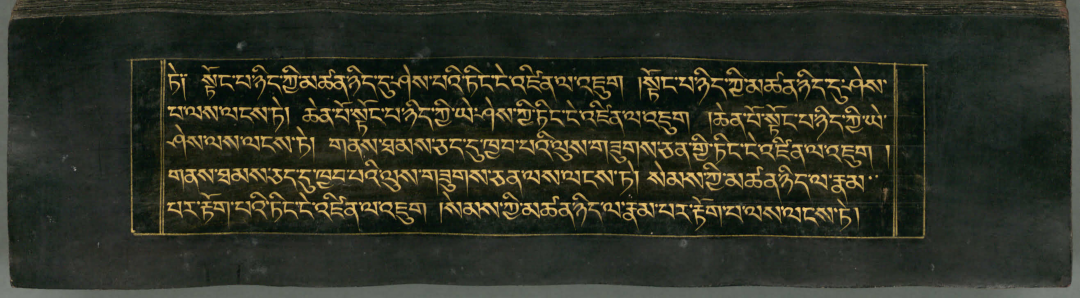 ཏེ། སྟོང་པ་ཉིད་ཀྱི་མཚན་ཉིད་དུ་ཤེས་པའི་ཏིང་ངེ་འཛིན་ལ་འཇུག །སྟོང་པ་ཉིད་ཀྱི་མཚན་ཉིད་དུ་ཤེས་
པ་ལས་ལངས་ཏེ། ཆེན་པོ་སྟོང་པ་ཉིད་ཀྱི་ཡེ་ཤེས་ཀྱི་ཏིང་ངེ་འཛིན་ལ་འཇུག །ཆེན་པོ་སྟོང་པ་ཉིད་ཀྱི་ཡེ་
ཤེས་ལས་ལངས་ཏེ། གནས་ཐམས་ཅད་དུ་ཁྱབ་པའི་ལུས་གཟུགས་ཅན་གྱི་ཏིང་ངེ་འཛིན་ལ་འཇུག །
གནས་ཐམས་ཅད་དུ་ཁྱབ་པའི་ལུས་གཟུགས་ཅན་ལས་ལངས་ཏེ། སེམས་ཀྱི་མཚན་ཉིད་ལ་རྣམ་
པར་རྟོག་པའི་ཏིང་ངེ་འཛིན་ལ་འཇུག །སེམས་ཀྱི་མཚན་ཉིད་ལ་རྣམ་པར་རྟོག་པ་ལས་ལངས་ཏེ།